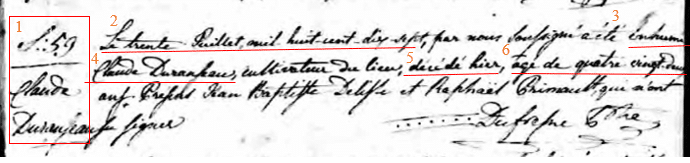 1
2
3
S: 59
Le trente Juillet, mil huit-cent-dix-sept, par nous soussigné a été inhumé
4
5
6
Claude Duranseau, cultivateur du lieu, décédé hier, âgé de quatre vingt deux
Claude
ans. Présens Jean Baptiste Delisle et Raphaël Primault, qui n'ont
Duranseau
su signer
Dufresne Ptre